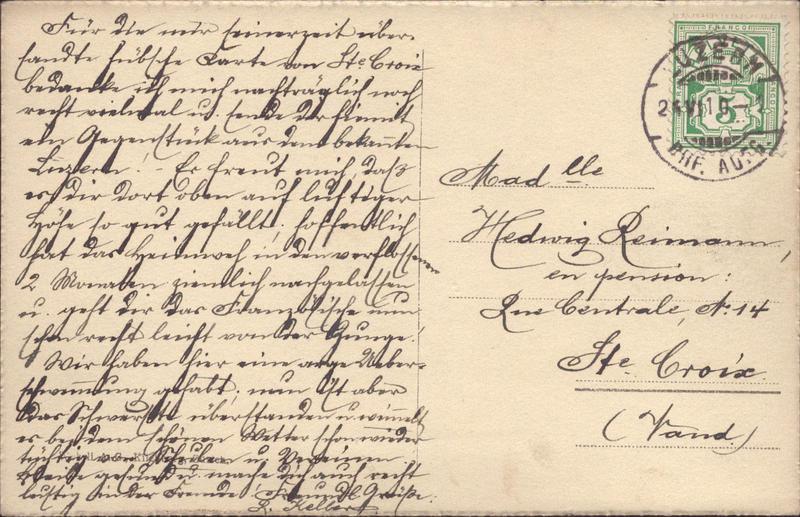 Für die mir seinerzeit über-
sandte hübsche Carte von Ste. Croix
bedanke ich mich nachträglich noch
recht vielmal u. sende dir hiemit
ein Gegenstück aus dem bekannten
Luzern! - Es freut mich, daß
es dir dort oben auf luftiger
Höhe so gut gefällt; hoffentlich
hat das Heimweh in den verflossenen
2 Monaten ziemlich nachgelassen
u. geht dir das Französische nun
schon recht leicht von der Zunge!
Wir haben hier eine arge Ueber-
schwemmung gehabt; nun ist aber
das Schwerste überstanden u. wimmelt
es bei dem schönen Wetter schon wieder
tüchtig von Schulen u. Vereinen.
Bleibe gesund u. mache dich auch recht
lustig in der Fremde! Freundl. Grüße:
Keller
FRANCO
5
LUZERN
BRF. AUFG.
Madlle
Hedwig Reimann,
en pension:
Rue Centrale, No. 14
Ste. Croix
(Vaud.)